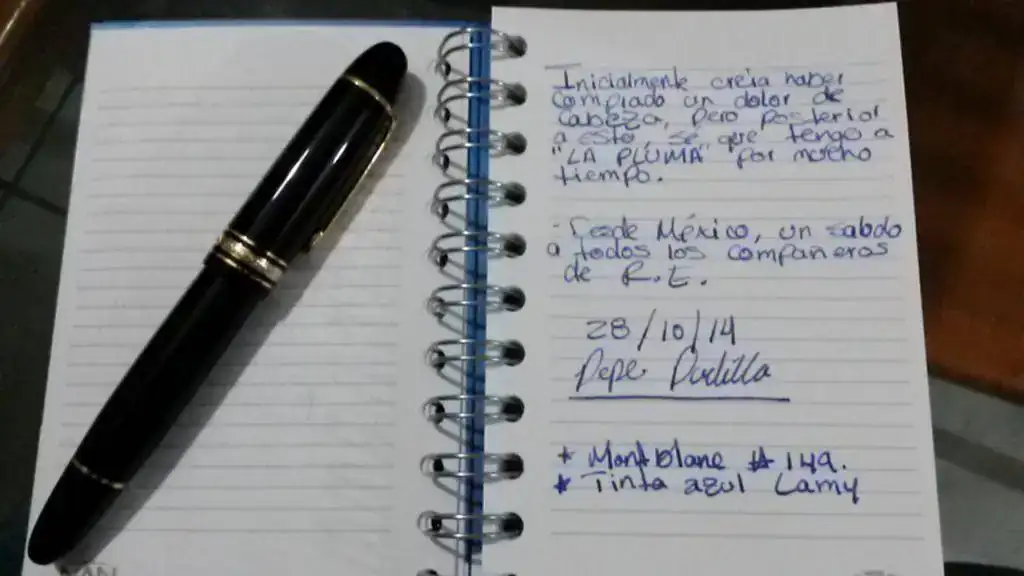 Inicialmente creia haber
comprado un dolor de
cabeza, pero posterior
a esto, se que tengo a
"LA PLUMA" por mucho
tiempo.
- Desde México, un saludo
a todos los compañeros
de R.E.
28/10/14
Pepe Padilla
* Montblanc # 149.
* Tinta azul Lamy